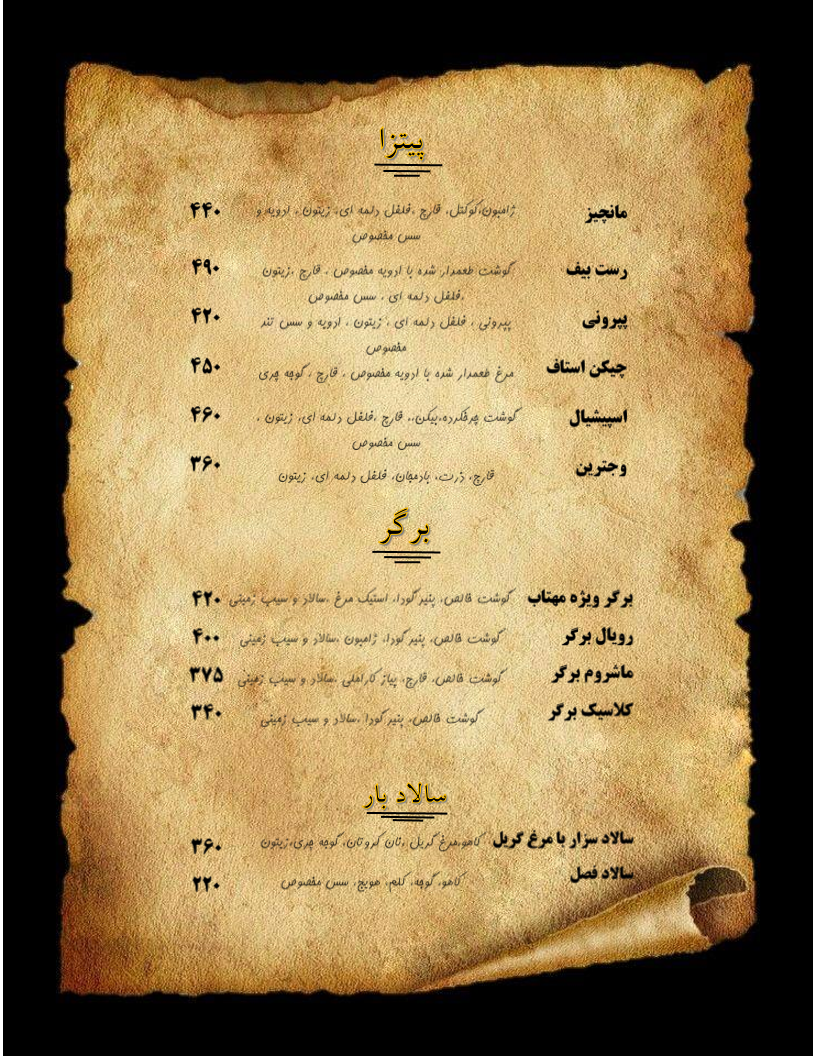 پیتزا
مانچیز ژامبون،کوکتل، قارچ ،فلفل دلمه ای، زیتون ، ادویه و ۴۴۰
سس مخصوص
رست بیف گوشت طعمدار شده با ادویه مخصوص ، قارچ ،زیتون ۴۹۰
،فلفل دلمه ای ، سس مخصوص
پپرونی پپرونی ، فلفل دلمه ای ، زیتون ، ادویه و سس تند ۴۲۰
مخصوص
چیکن استاف مرغ طعمدار شده با ادویه مخصوص ، قارچ ، گوجه چری ۴۵۰
اسپیشیال گوشت چرخکرده،بیکن،، قارچ ،فلفل دلمه ای، زیتون ، ۴۶۰
سس مخصوص
وجترین قارچ، ذرت، بادمجان، فلفل دلمه ای، زیتون ۳۶۰
برگر
برگر ویژه مهتاب گوشت خالص، پنیر گودا، استیک مرغ ،سالاد و سیب زمینی ۴۲۰
رویال برگر گوشت خالص، پنیر گودا، ژامبون ،سالاد و سیب زمینی ۴۰۰
ماشروم برگر گوشت خالص، قارچ، پیاز کاراملی ،سالاد و سیب زمینی ۳۷۵
کلاسیک برگر گوشت خالص، پنیر گودا ،سالاد و سیب زمینی ۳۴۰
سالاد بار
سالاد سزار با مرغ گریل کاهو،مرغ گریل ،نان کروتان، گوجه چری،زیتون ۳۶۰
سالاد فصل کاهو، گوجه، کلم، هویج، سس مخصوص ۲۲۰